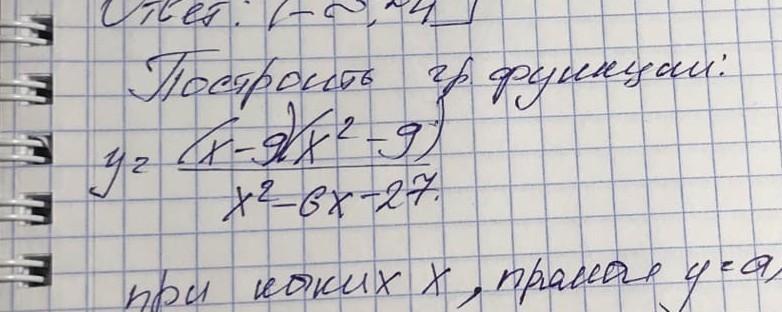 Ответ: (-∞; -4]
Построить гр. функции:
y = (x-9)(x²-9)
x²-6x-27.
при каких x, прямая y=a,